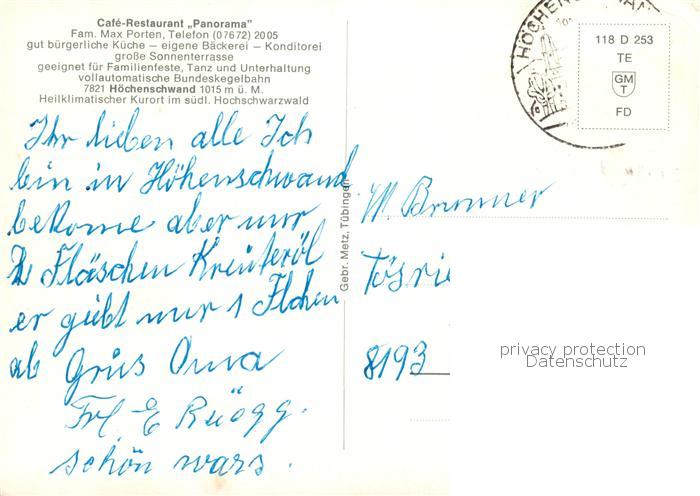 Café-Restaurant „Panorama"
Fam. Max Porten, Telefon (07672) 2005
gut bürgerliche Küche — eigene Bäckerei — Konditorei
große Sonnenterrasse
geeignet für Familienfeste, Tanz und Unterhaltung
vollautomatische Bundeskegelbahn
7821 Höchenschwand 1015 m ü. M.
Heilklimatischer Kurort im südl. Hochschwarzwald
Ihr lieben alle Ich
bin in Höhenschwand
bekome aber nur
Fläschen Kreuteröl
er giebt nur 1 Flchen
ab Grüs Oma
Frl E Rüögg.
schön wars.
Gebr. Metz, Tübingen
HÖCHENSCHWAN
118 D 253
TE
GM
T
FD
M. Brunner
Tösrie
8193
privacy protection
Datenschutz